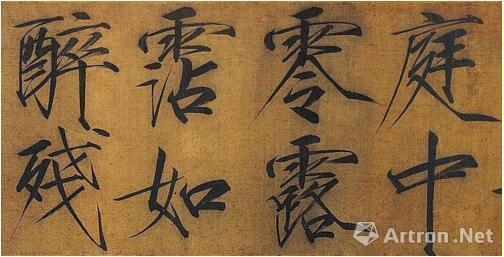 庭中
零露
霑如
醉残
Artron.Net